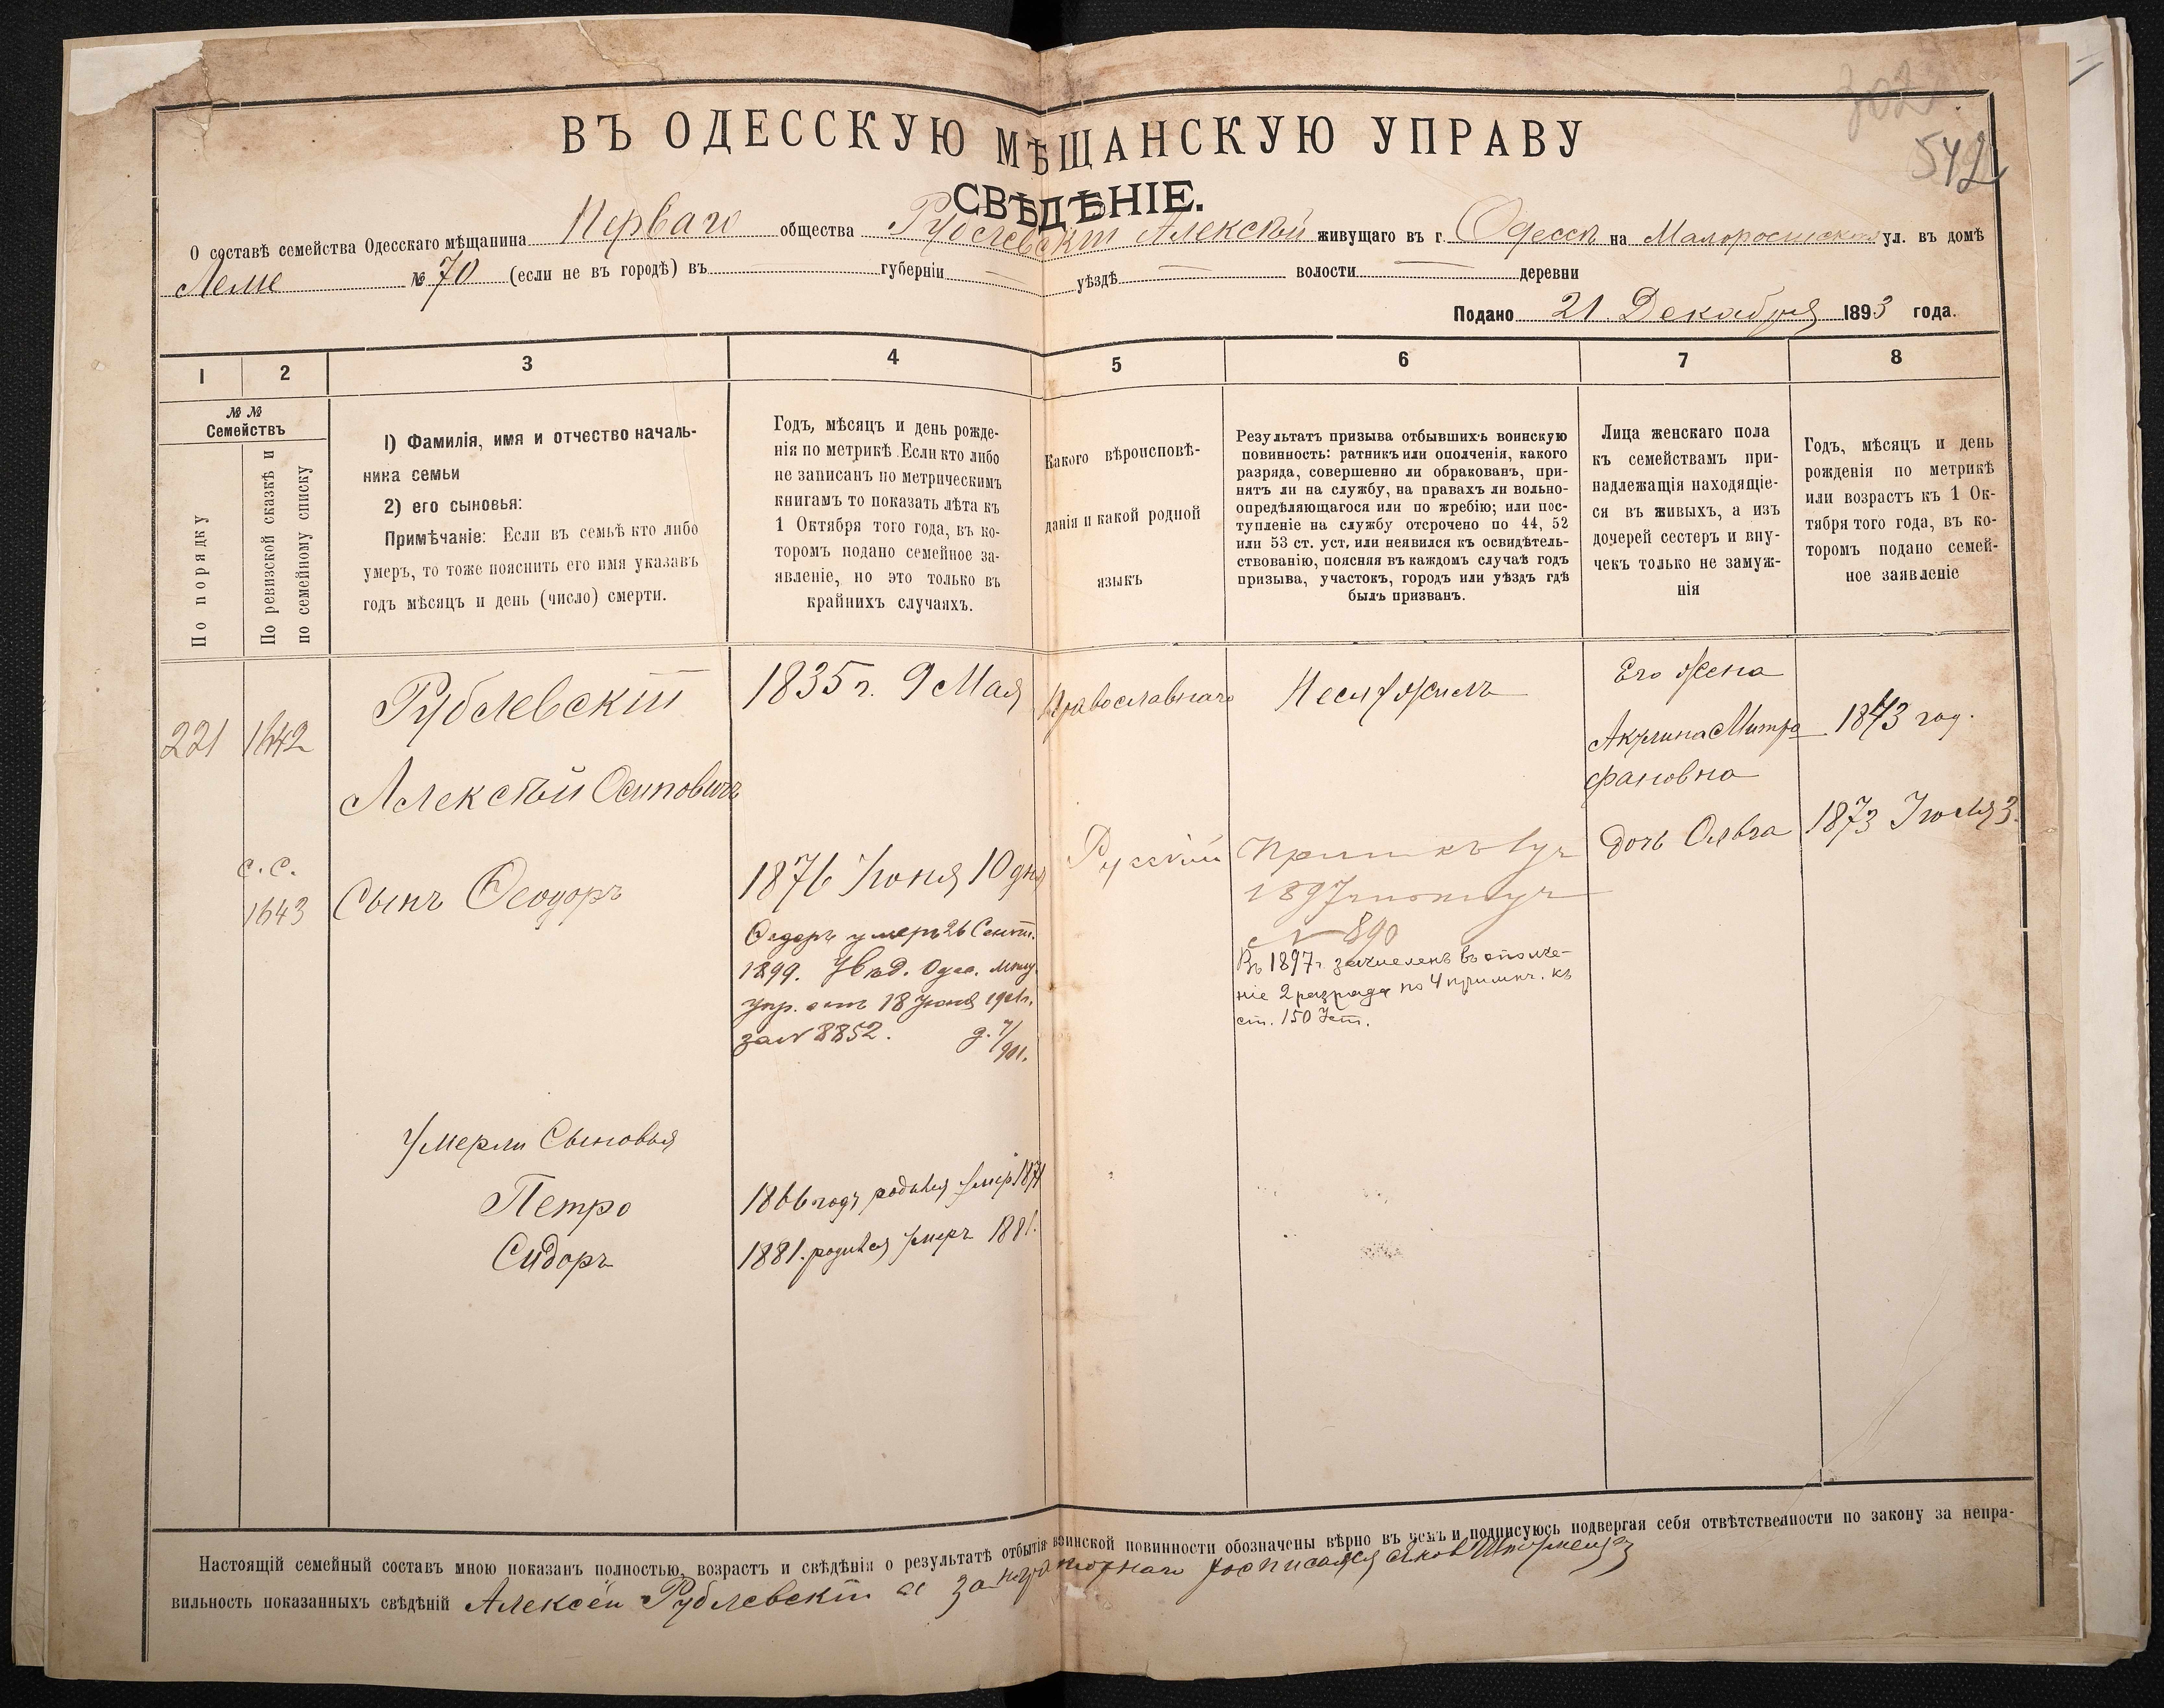 302
542
ВЪ ОДЕССКУЮ МѢЩАНСКУЮ УПРАВУ
СВѢДѢНІЕ.
О составѣ семейства Одесскаго мѣщанина Перваго общества Рублевскій Алексѣй живущаго въ г. Одессѣ на Малоросійской ул. въ домѣ
Леме № 70 (если не въ городѣ) въ губерніи уѣздѣ волости деревни
Подано 21 Декабря 1893 года.
1 2 3 4 5 6 7 8
№ №
Семействъ
По порядку
По ревизской сказкѣ и
по семейному списку
1) Фамилія, имя и отчество началь-
ника семьи
2) его сыновья:
Примѣчаніе: Если въ семьѣ кто либо
умеръ, то тоже пояснить его имя указавъ
годъ мѣсяцъ и день (число) смерти.
Годъ, мѣсяцъ и день рожде-
нія по метрикѣ. Если кто либо
не записанъ по метрическимъ
книгамъ то показать лѣта къ
1 Октября того года, въ ко-
торомъ подано семейное за-
явленіе, но это только въ
крайнихъ случаяхъ.
Какого вѣроисповѣ-
данія и какой родной
языкъ
Результатъ призыва отбывшихъ воинскую
повинность: ратникъ или ополченія, какого
разряда, совершенно ли обракованъ, при-
нятъ ли на службу, на правахъ ли вольно-
опредѣляющагося или по жребію; или пос-
тупленіе на службу отсрочено по 44, 52
или 53 ст. уст, или неявился къ освидѣтель-
ствованію, поясняя въ каждомъ случаѣ годъ
призыва, участокъ, городъ или уѣздъ гдѣ
былъ призванъ.
Лица женскаго пола
къ семействамъ при-
надлежащія находящіе-
ся въ живыхъ, а изъ
дочерей сестеръ и вну-
чекъ только не замуж-
нія
Годъ, мѣсяцъ и день
рожденія по метрикѣ
или возрастъ къ 1 Ок-
тября того года, въ ко-
торомъ подано семей-
ное заявленіе
221 1642
Рублевскій
Алексѣй Осиповичъ
1835 г. 9 Мая
Православнаго
Неслужилъ
Его Жена
Акулина Митро
фановна
1843 год.
дочь Ольга
1873 Іюля 3.
с. с.
1643
Сынъ Ѳеодоръ
1876 Іюня 10 дня
Ѳедоръ умеръ 26 Сент.
1899. Увѣд. Одес. мѣщ.
упр. отъ 18 Іюня 1901 г.
за № 8852.
Русскій
1897
№ 890
Въ 1897 г. зачисленъ въ ополче-
ніе 2 разряда по 4 примѣч. къ
ст. 150 Уст.
Умерли Сыновья
Петро
1866 годъ родился умеръ
Сидоръ
1881. родился умеръ 1881.
Настоящій семейный составъ мною показанъ полностью, возрастъ и свѣдѣнія о результатѣ отбытія воинской повинности обозначены вѣрно въ чемъ и подписуюсь подвергая себя отвѣтственности по закону за непра-
вильность показанныхъ свѣдѣній Алексѣй Рублевскій а за неграмотнаго росписался Яковъ